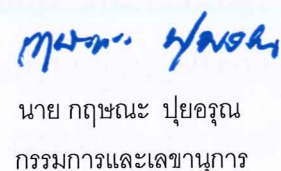 นาย กฤษณะ ปุยอรุณ
กรรมการและเลขานุการ